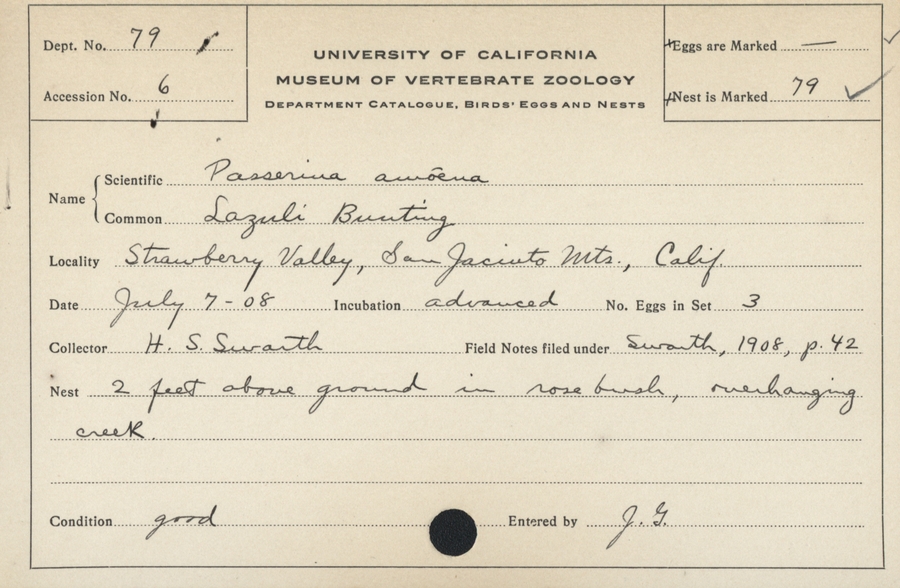 Dept. No. 79
Accession No. 6
UNIVERSITY OF CALIFORNIA
MUSEUM OF VERTEBRATE ZOOLOGY
DEPARTMENT CATALOGUE, BIRDS' EGGS AND NESTS
Eggs are Marked —
Nest is Marked 79 ✓
Name { Scientific Passerina amoena
Common Lazuli Bunting
Locality Strawberry Valley, San Jacinto Mts., Calif.
Date July 7-08 Incubation advanced No. Eggs in Set 3
Collector H. S. Swarth Field Notes filed under Swarth, 1908, p. 42
Nest 2 feet above ground in rose bush, overhanging
creek.
Condition good Entered by J. G.